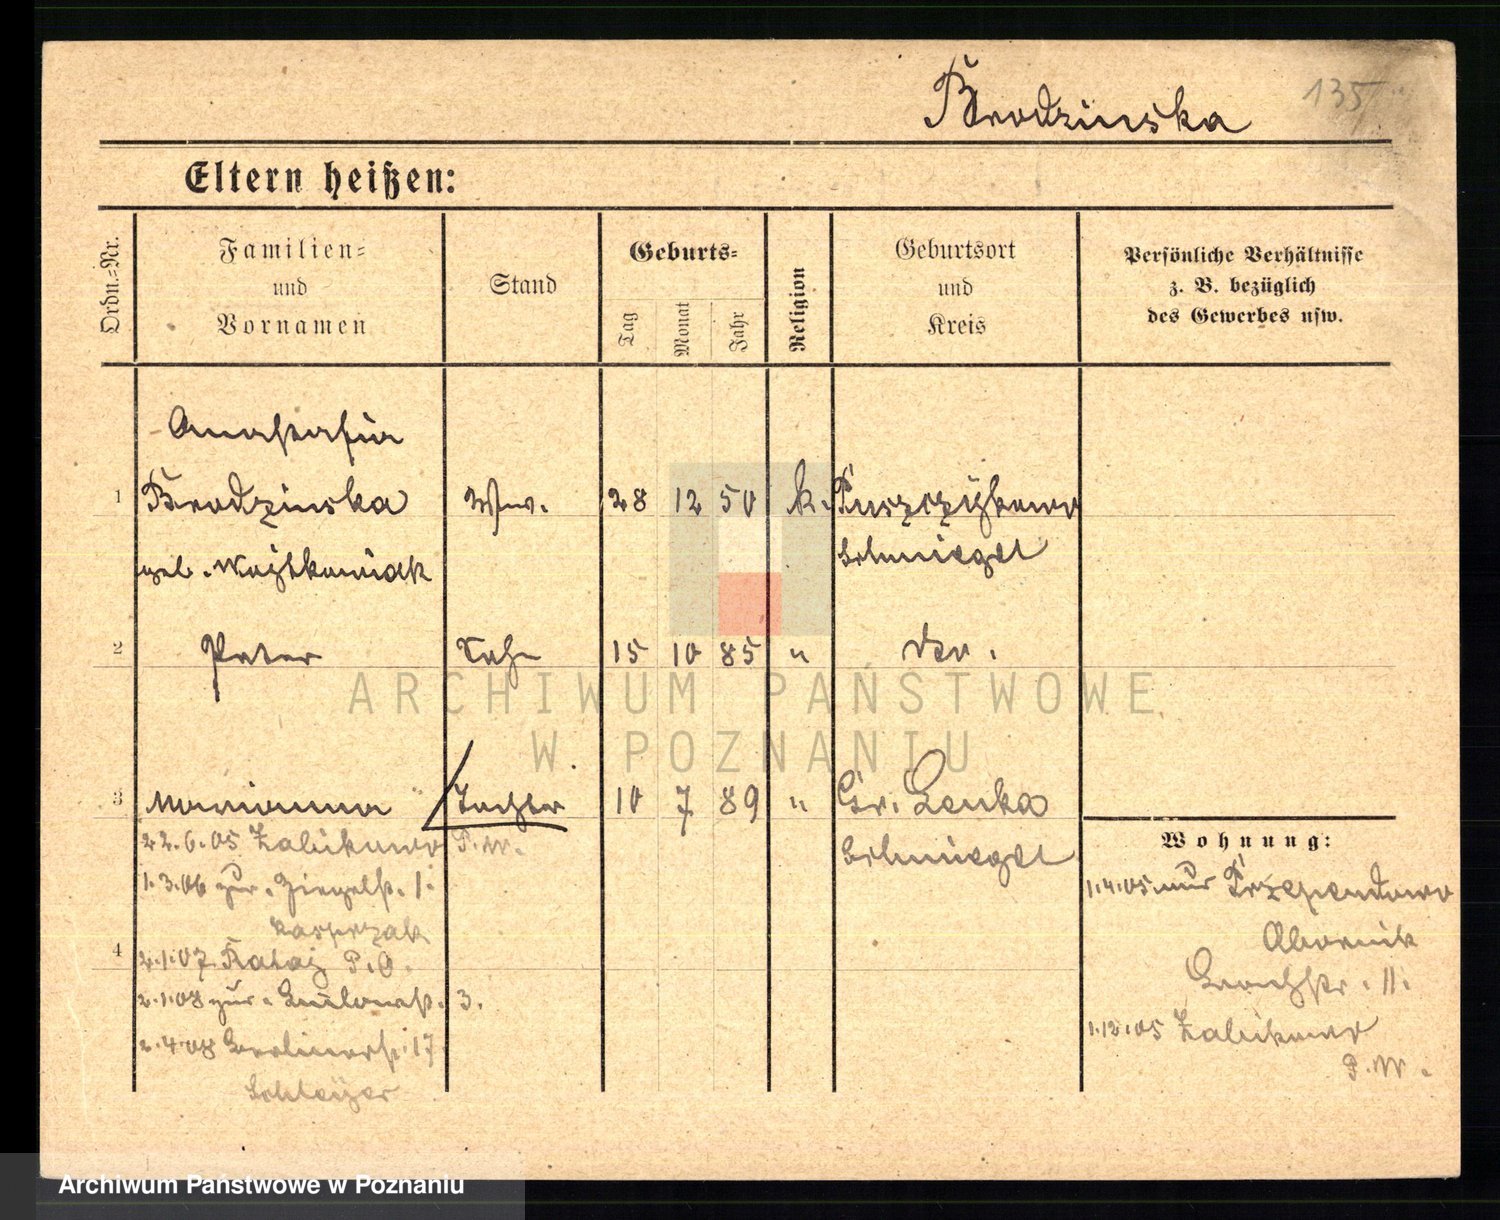 Brodzinska
135
Eltern heißen:
Ordn.=Nr.
Familien=
und
Vornamen
Stand
Geburts=
Tag
Monat
Jahr
Religion
Geburtsort
und
Kreis
Persönliche Verhältnisse
z. B. bezüglich
des Gewerbes usw.
Anastasia
1 Brodzinska Ww. 28 12 50 k. Puszczykowo
geb. Woytkowiak Schmiegel
2 Peter Sohn 15 10 85 " do.
3 Marianna Tochter 10 7 89 " Gr. Lenka
Schmiegel
22.6.05 Zabikowo P.W.
1.3.06 zur. Ziegelst. 1.
Kasprzak
4
2.1.07 Rataj P.O.
2.1.08 zur. 3.
2.4.08 Berlinerst. 17
Schleyer
Wohnung:
1.4.05 aus Przependowo
Obornik
11.
1.12.05 Zabikowo
P.W.
ARCHIWUM PAŃSTWOWE
W POZNANIU
Archiwum Państwowe w Poznaniu